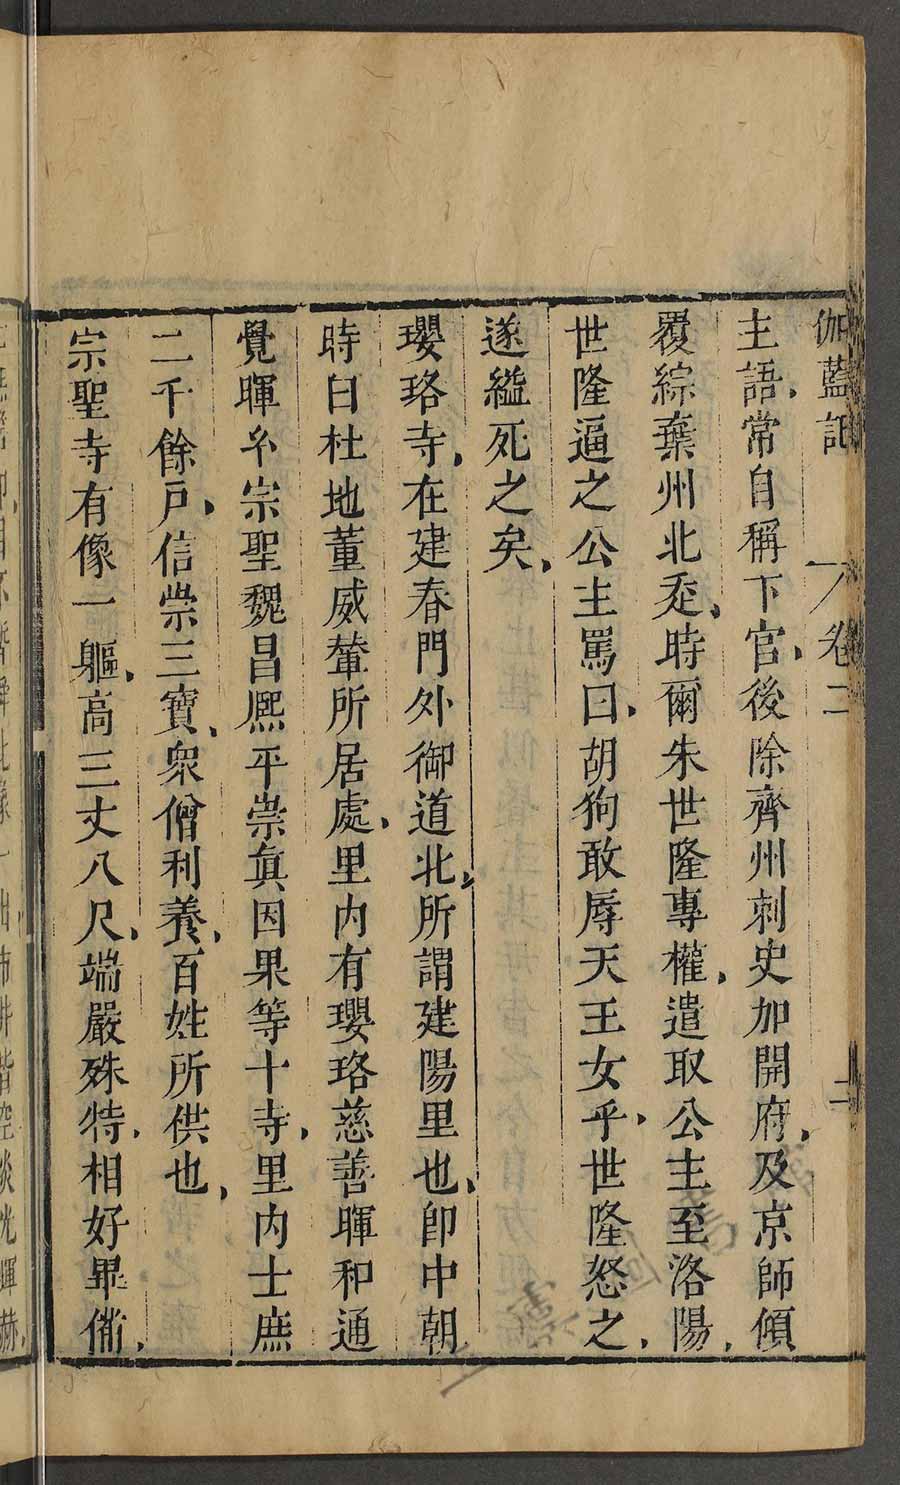 伽藍記 卷二 二
主語、常自稱下官、後除齊州刺史加開府、及京師傾
覆綜棄州北走、時爾朱世隆專權、遣取公主至洛陽、
世隆逼之公主罵曰、胡狗敢辱天王女乎、世隆怒之、
遂縊死之矣、
瓔珞寺、在建春門外御道北、所謂建陽里也、卽中朝
時白杜地董威輦所居處、里內有瓔珞慈善暉和通
覺暉㕕宗聖魏昌熈平崇眞因果等十寺、里內士庶
二千餘戶、信崇三寶、衆僧利養、百姓所供也、
宗聖寺有像一軀、高三丈八尺、端嚴殊特、相好畢備、